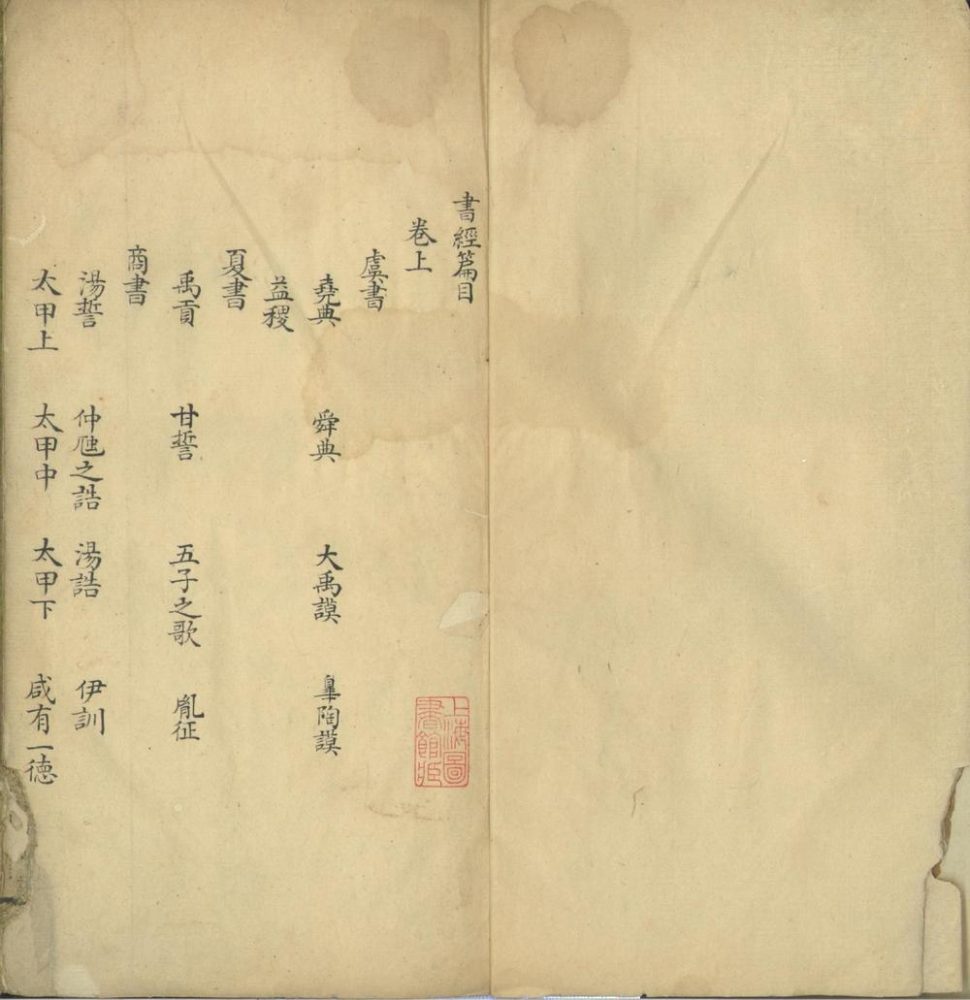 書經篇目
卷上
虞書
堯典 舜典 大禹謨 臯陶謨
益稷
夏書
禹貢 甘誓 五子之歌 胤征
商書
湯誓 仲虺之誥 湯誥 伊訓
太甲上 太甲中 太甲下 咸有一德
上海圖
書館藏